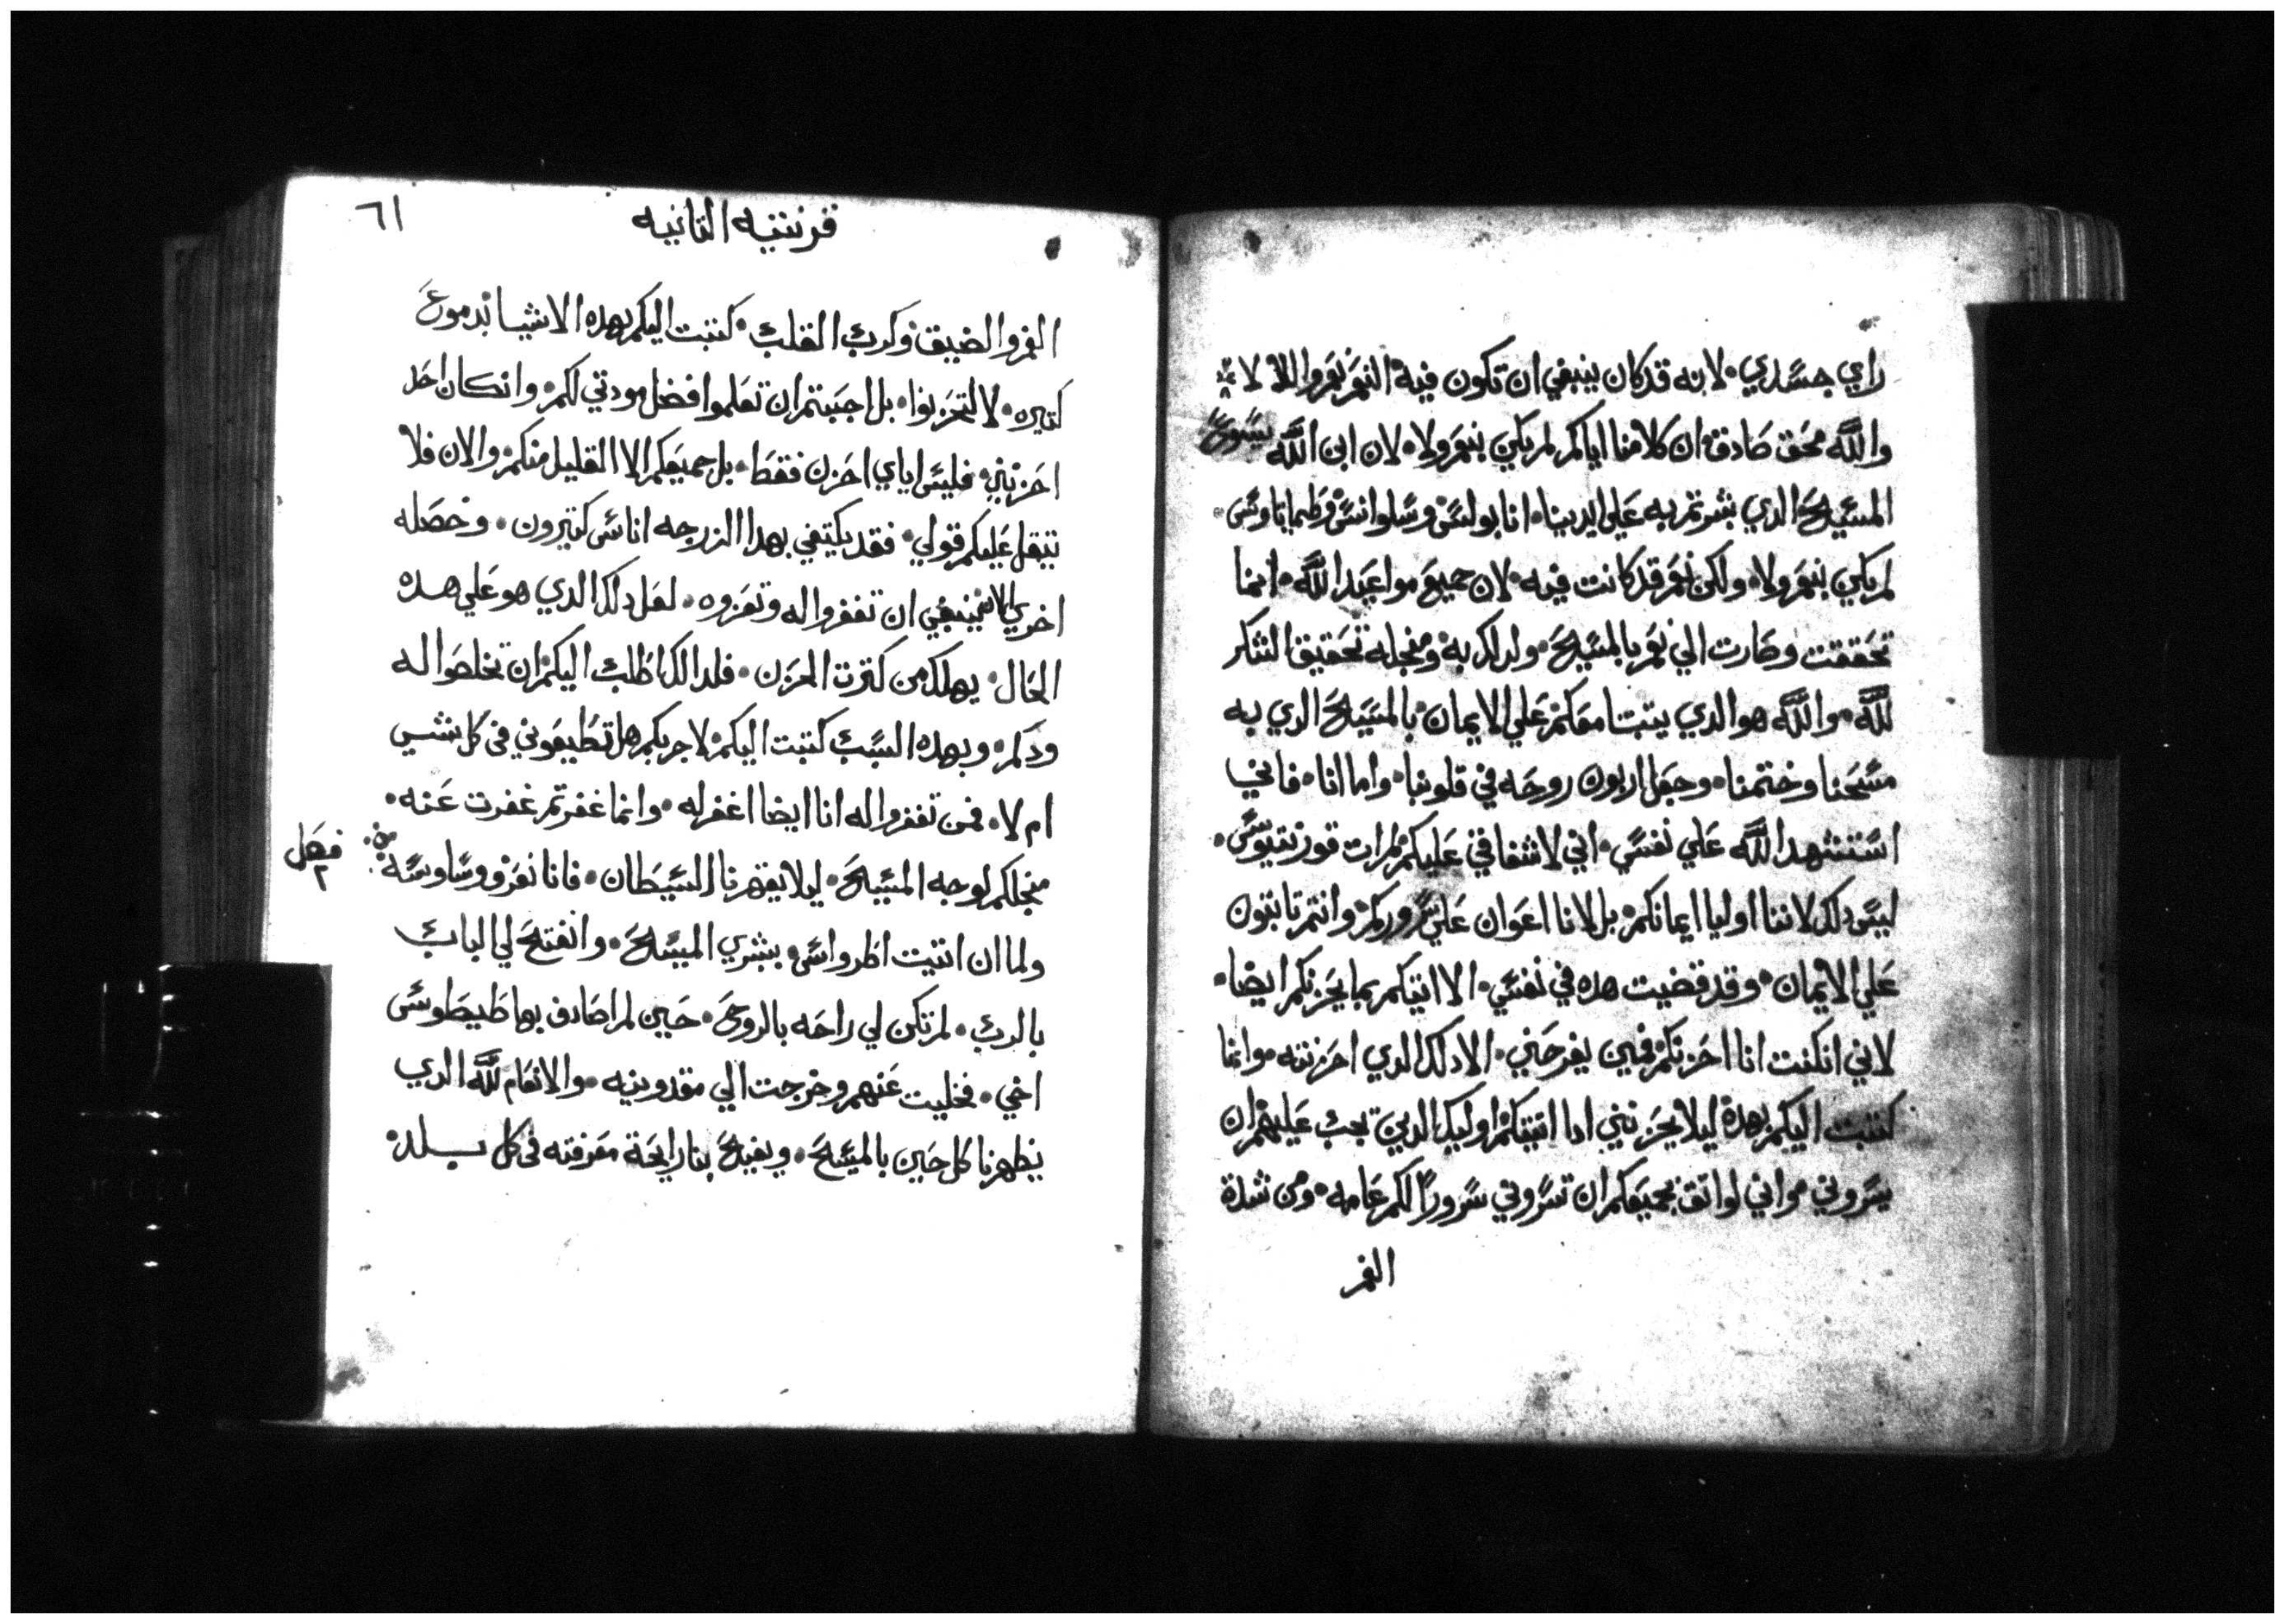 راي جسدي. لانه قد كان ينبغي ان تكون فيه النعم نعم واللا لا
والله محق صادق ان كلامنا اياكم لم يكن بنعم ولا. لان ابن الله يسوع
المسيح الدي بشرتم به علي ايدينا. انا بولس وسلوانس وطيماتاوس.
لم يكن بنعم ولا. ولكن نعم قد كانت فيه. لان جميع مواعيد الله. انما
تحققت وصارت الي نعم بالمسيح. ولدلك به ومنجله تحقيق الشكر
لله. والله هو الدي يتبتنا معكم علي الايمان بالمسيح الدي به
مسحنا وختمنا. وجعل اربون روحه في قلوبنا. واما انا. فاني
استشهد الله علي نفسي. اني لاشفاقي عليكم لم ات قورنتيوس.
ليس دلك لاننا اوليا ايمانكم. بل لانا اعوان علي سروركم. وانتم تابتون
علي الايمان. وقد قضيت هده في نفسي. الا اتيكم بما يحزنكم ايضا.
لاني ان كنت انا احزنكم فمن يفرحني. الا دلك الدي احزنته. وانما
كتبت اليكم بهدة ليلا يحزنني ادا اتيتكم اوليك الدين تجب عليهم ان
يسروني. واني لواتق بجميعكم ان تسروني سرورا لكم عامه. ومن شدة
الغم
قرنتيه التانيه
٦١
الغم والضيق وكرب القلب. كتبت اليكم بهده الاشيا بدموع
كتيره. لا لتحزنوا. بل احببتم ان تعلموا افضل مودتي لكم. وان كان احد
احزنني. فليس اياي احزن فقط. بل جميعكم الا القليل منكم. والان فلا
يتقل عليكم قولي. فقد يكتفي بهدا الزرجه اناس كتيرون. وخصله
اخري الان ينبغي ان تغفروا له وتعزوه. لعل دلك الدي هو علي هده
الحال. يهلك من كترت الحزن. فلدالك اطلب اليكم ان تخلصوا له
ودكم. وبهده السبب كتبت اليكم. لاجربكم هل تطيعوني في كل شي
ام لا. فمن تغفروا له انا ايضا اغفر له. وانما غفرتم غفرت عنه.
منجلكم لوجه المسيح. ليلا يقهرنا الشيطان. فانا نعرف وساوسه
فصل
٢
ولما ان اتيت اطرواس. بشري المسيح. وانفتح لي الباب
بالرب. لم تكن لي راحه بالروح. حين لم اصادف بها طيطوس
اخي. فخليت عنهم وخرجت الي مقدونيه. والانعام لله الدي
يظهرنا كل حين بالمسيح. ويفيح بنا رايحة معرفته في كل بلد